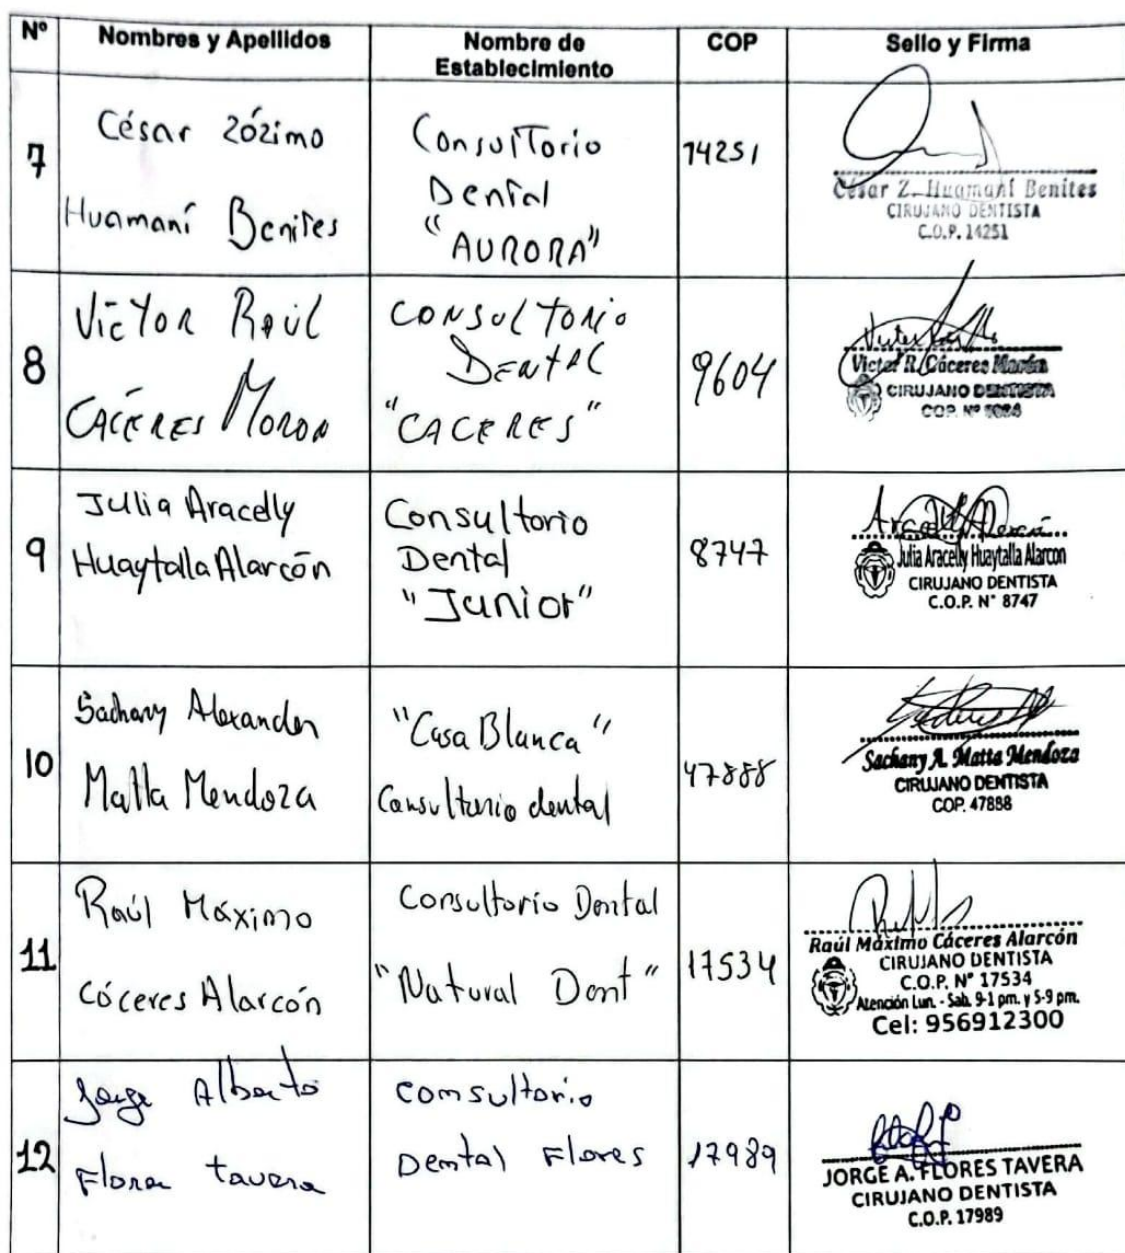 Nº Nombres y Apellidos Nombre de Establecimiento COP Sello y Firma
7
César Zózimo
Huamaní Benites
Consultorio
Dental
"AURORA"
14251
César Z. Huamaní Benites
CIRUJANO DENTISTA
C.O.P. 14251
8
Víctor Raúl
CACÉRES MORON
CONSULTORIO
DENTAL
"CACERES"
9604
Victor R. Cáceres Morón
CIRUJANO DENTISTA
COP. Nº
9
Julia Aracelly
Huaytalla Alarcón
Consultorio
Dental
"Junior"
8747
Julia Aracelly Huaytalla Alarcon
CIRUJANO DENTISTA
C.O.P. N° 8747
10
Sachany Alexander
Matta Mendoza
"Casa Blanca"
Consultorio dental
47888
Sachany A. Matta Mendoza
CIRUJANO DENTISTA
COP. 47888
11
Raúl Máximo
Cáceres Alarcón
Consultorio Dental
"Natural Dent"
17534
Raúl Máximo Cáceres Alarcón
CIRUJANO DENTISTA
C.O.P. N° 17534
Atención Lun. - Sab. 9-1 pm. y 5-9 pm.
Cel: 956912300
12
Jorge Alberto
Flores tavera
Comsultorio
Dental Flores
17989
JORGE A. FLORES TAVERA
CIRUJANO DENTISTA
C.O.P. 17989